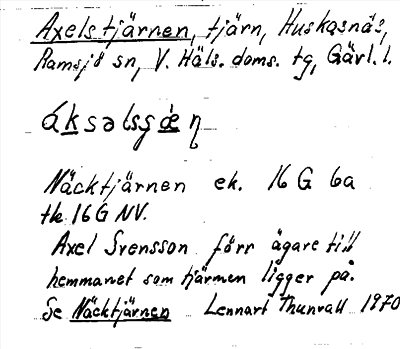 Axelstjärnen, tjärn, Huskasnäs,
Ramsjö sn, V. Häls. doms. tg, Gävl. l.
áksəlsʂæ̀ṇ
Näcktjärnen ek. 16 G 6a
tk 16 G NV.
Axel Svensson förr ägare till
hemmanet som tjärnen ligger på.
Se Näcktjärnen Lennart Thunvall 1970